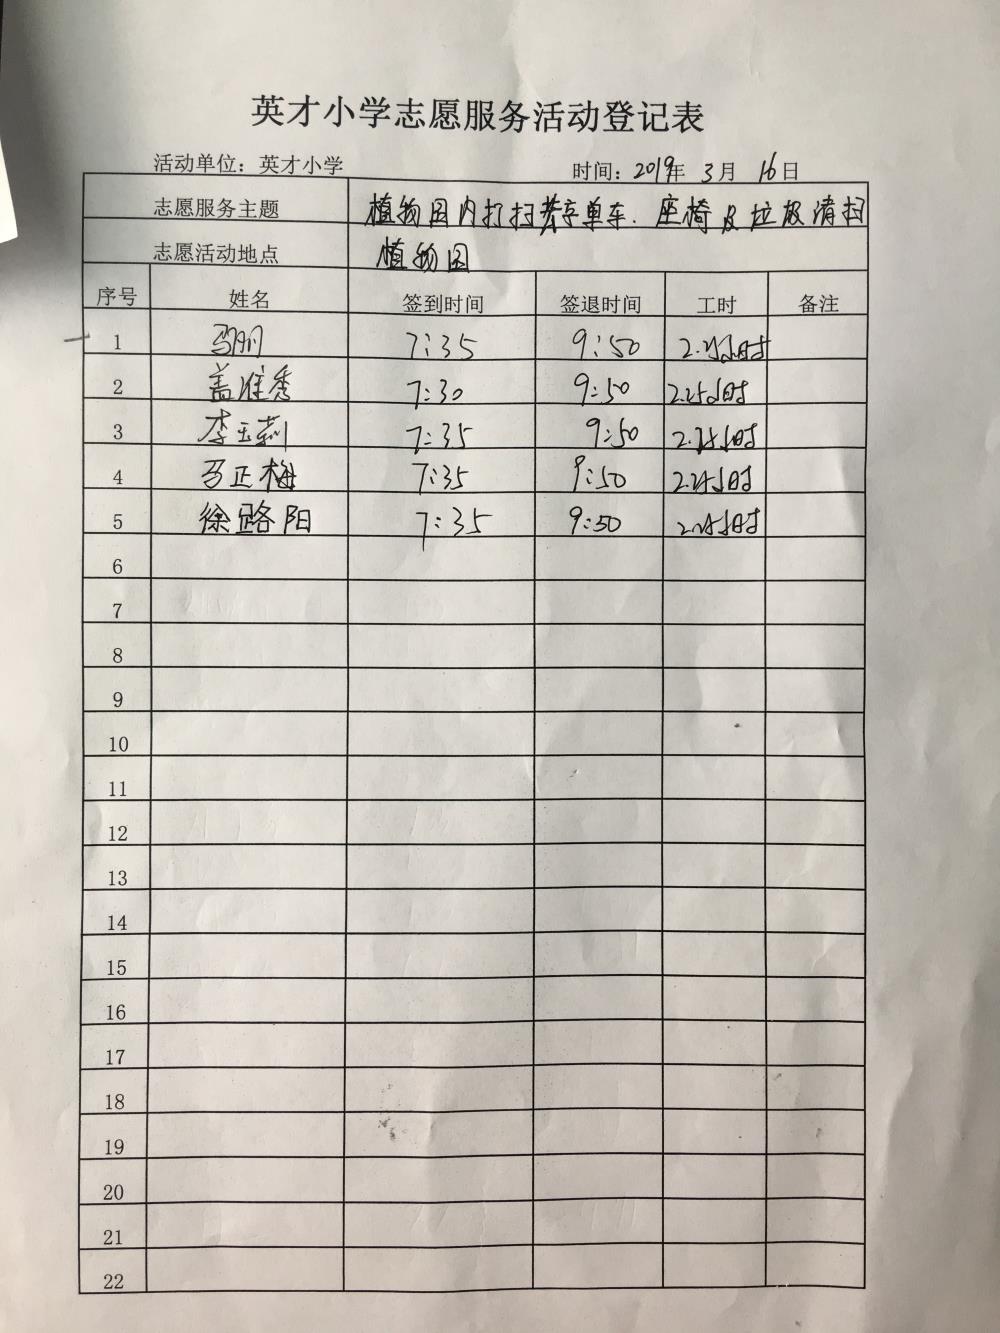 英才小学志愿服务活动登记表
活动单位：英才小学 时间：2019年 3月 16日
志愿服务主题 植物园内打扫 单车、座椅及垃圾清扫
志愿活动地点 植物园
序号 姓名 签到时间 签退时间 工时 备注
1 马 7:35 9:50 小时
2 盖 秀 7:30 9:50 小时
3 李玉莉 7:35 9:50 小时
4 马正梅 7:35 9:50 小时
5 徐 路阳 7:35 9:50 小时
6
7
8
9
10
11
12
13
14
15
16
17
18
19
20
21
22